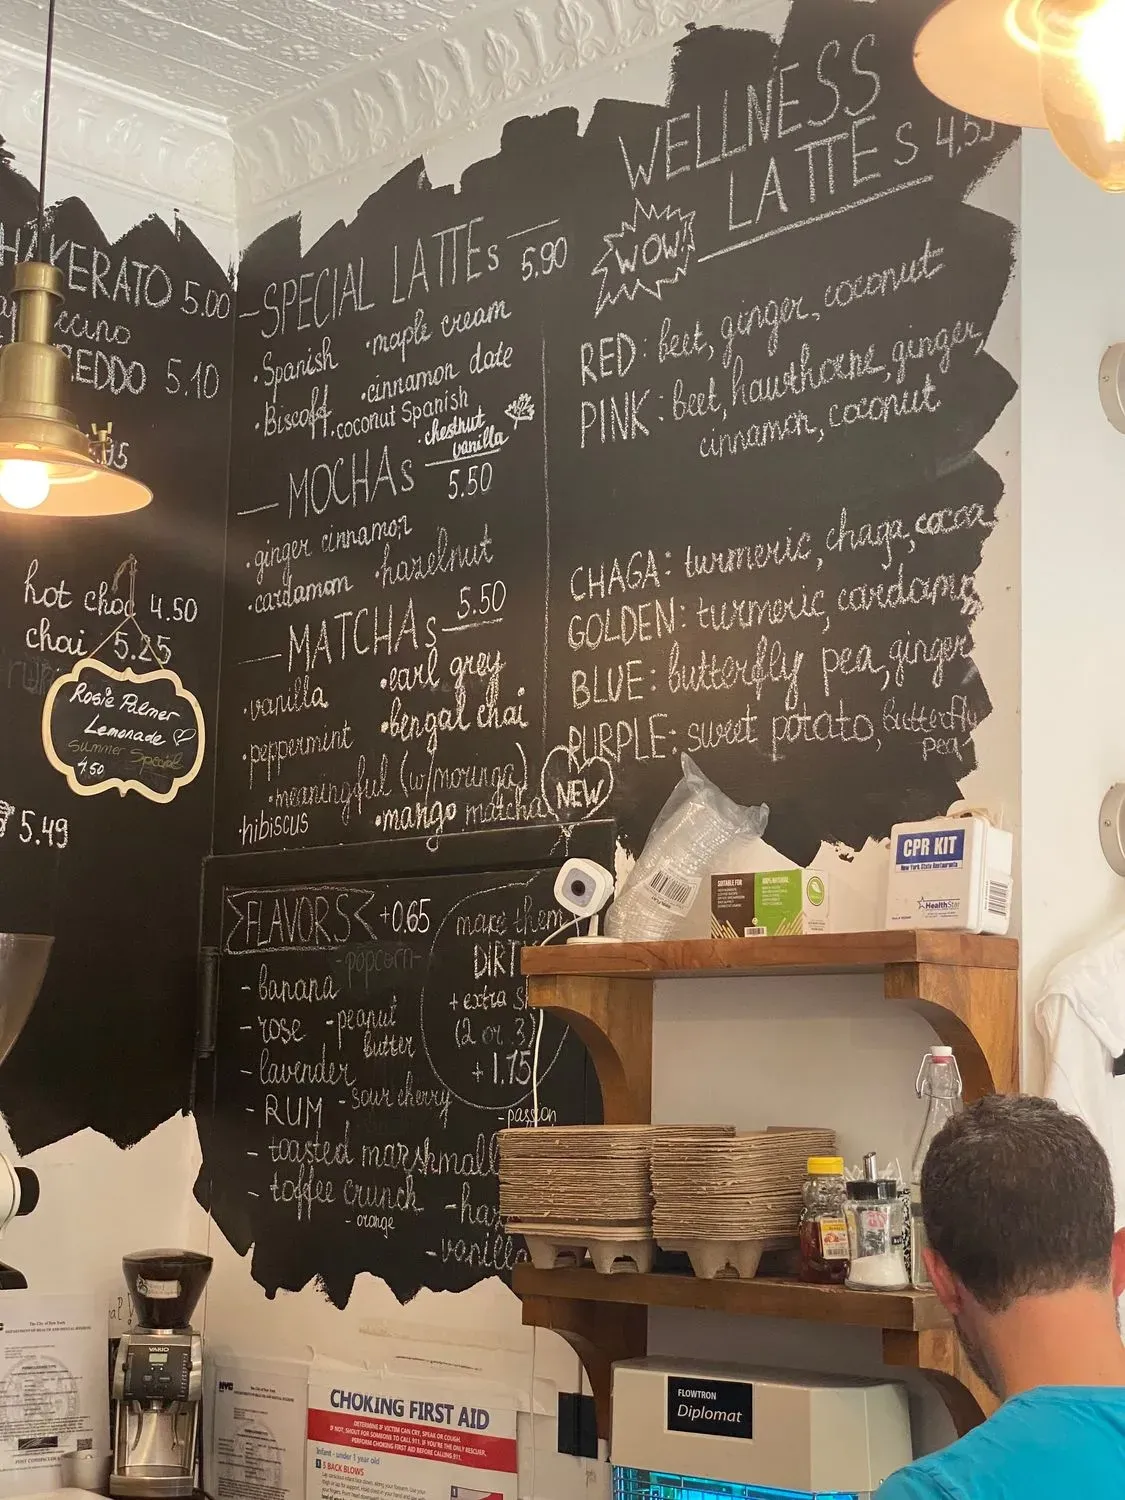 5.00
ccino
5.10
hot choc 4.50
chai 5.25
Rosie Palmer
Lemonade
Summer Special
4.50
5.49
SPECIAL LATTEs 5.90
•Spanish •maple cream
•Biscoff •cinnamon date
•coconut Spanish
•chestnut
vanilla
MOCHAs 5.50
•ginger cinnamon
•cardamon •hazelnut
MATCHAs 5.50
•vanilla •earl grey
•peppermint •bengal chai
•meaningful (w/moringa)
•hibiscus •mango matcha
NEW
WELLNESS
LATTEs
WOW!
RED: beet, ginger, coconut
PINK: beet, hawthorne, ginger,
cinnamon, coconut
CHAGA: turmeric, chaga, cocoa
GOLDEN: turmeric,
BLUE: butterfly pea, ginger
PURPLE: sweet potato, butterfly
pea
FLAVORS +0.65
-popcorn-
- banana
- rose - peanut
butter
- lavender
- sour cherry
- RUM
- passion
- toasted
- toffee crunch
- orange
- vanilla
make them
DIRT
+ extra
(2 or 3)
+1.75
SUITABLE FOR
100% NATURAL
CPR KIT
New York State Restaurants
HealthStar
VARIO
The City of New York
NYC
The City of New York
CHOKING FIRST AID
DETERMINE IF VICTIM CAN CRY, SPEAK OR COUGH.
IF NOT, SHOUT FOR SOMEONE TO CALL 911. IF YOU'RE THE ONLY RESCUER,
PERFORM CHOKING FIRST AID BEFORE CALLING 911.
Infant - under 1 year old
1 5 BACK BLOWS
FLOWTRON
Diplomat